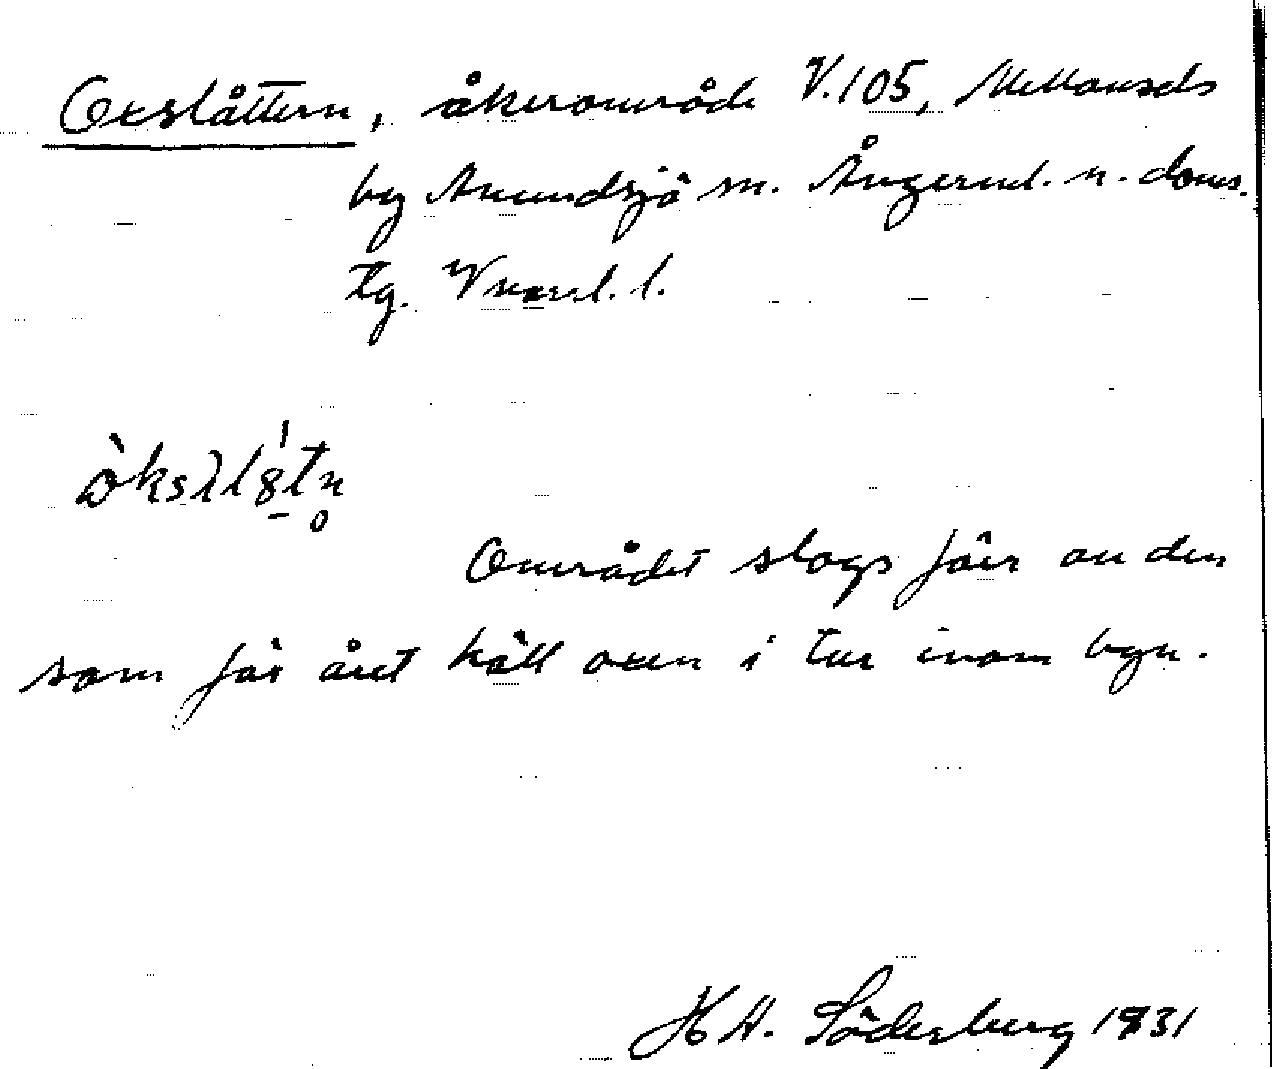 Oxslåttern, åkerområde V.105, Mellansels
by Anundsjö sn. Ångerml. n. doms.
tg. Vnorrl. l.
Området slogs för av den
som för året höll oxen i tur inom byn.
H A. Söderberg 1931